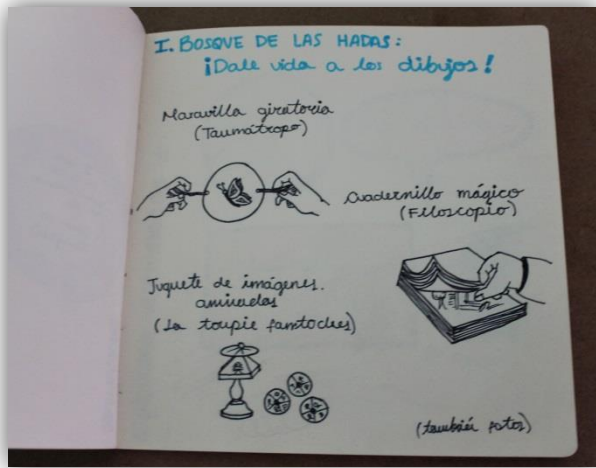 I. BOSQUE DE LAS HADAS:
¡Dale vida a los dibujos!
Maravilla giratoria
(Taumátropo)
Cuadernillo mágico
(Filoscopio)
Juguete de imágenes.
animadas
(La toupie fantoches)
(también fotos)